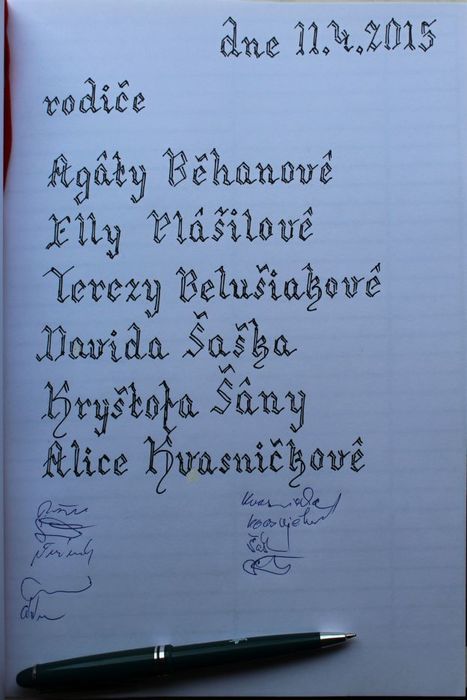 dne 11.4.2015
rodiče
Agáty Běhanové
Elly Plášilové
Terezy Belušiakové
Davida Šaška
Kryštofa Šány
Alice Kvasničkové